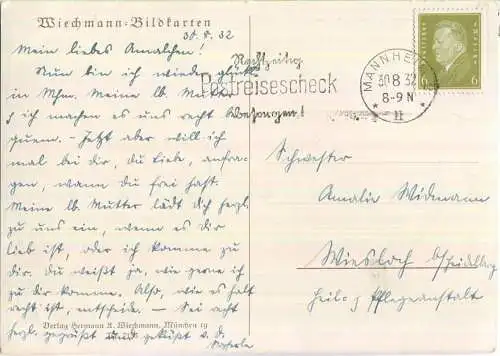 Wiechmann-Bildkarten
30.8.32
Mein liebes Amalchen!
Nun bin ich wieder glückl.
in Mhm. Meine lb. Mutter
u. ich machen es uns recht be-
quem. - Jetzt aber will ich
mal bei dir, du Liebe, anfra-
gen, wann du frei hast.
Meine lb. Mutter lädt dich herzl.
zu uns ein, wenn es dir
lieb ist, oder ich komme zu
dir. Du weißt ja, wie gerne ich
zu dir komme. Also, wie es halt
recht ist, entscheide. - Sei recht
herzl. gegrüßt und geküßt v. d.
Verlag Hermann A. Wiechmann, München 19
Rechtzeitig
Postreisescheck
besorgen!
MANNHEIM
30.8.32
8-9 N
* II *
6 6
Schwester
Amalie Widmann
Wiesloch b/Heidelberg
Heil- u. Pflegeanstalt